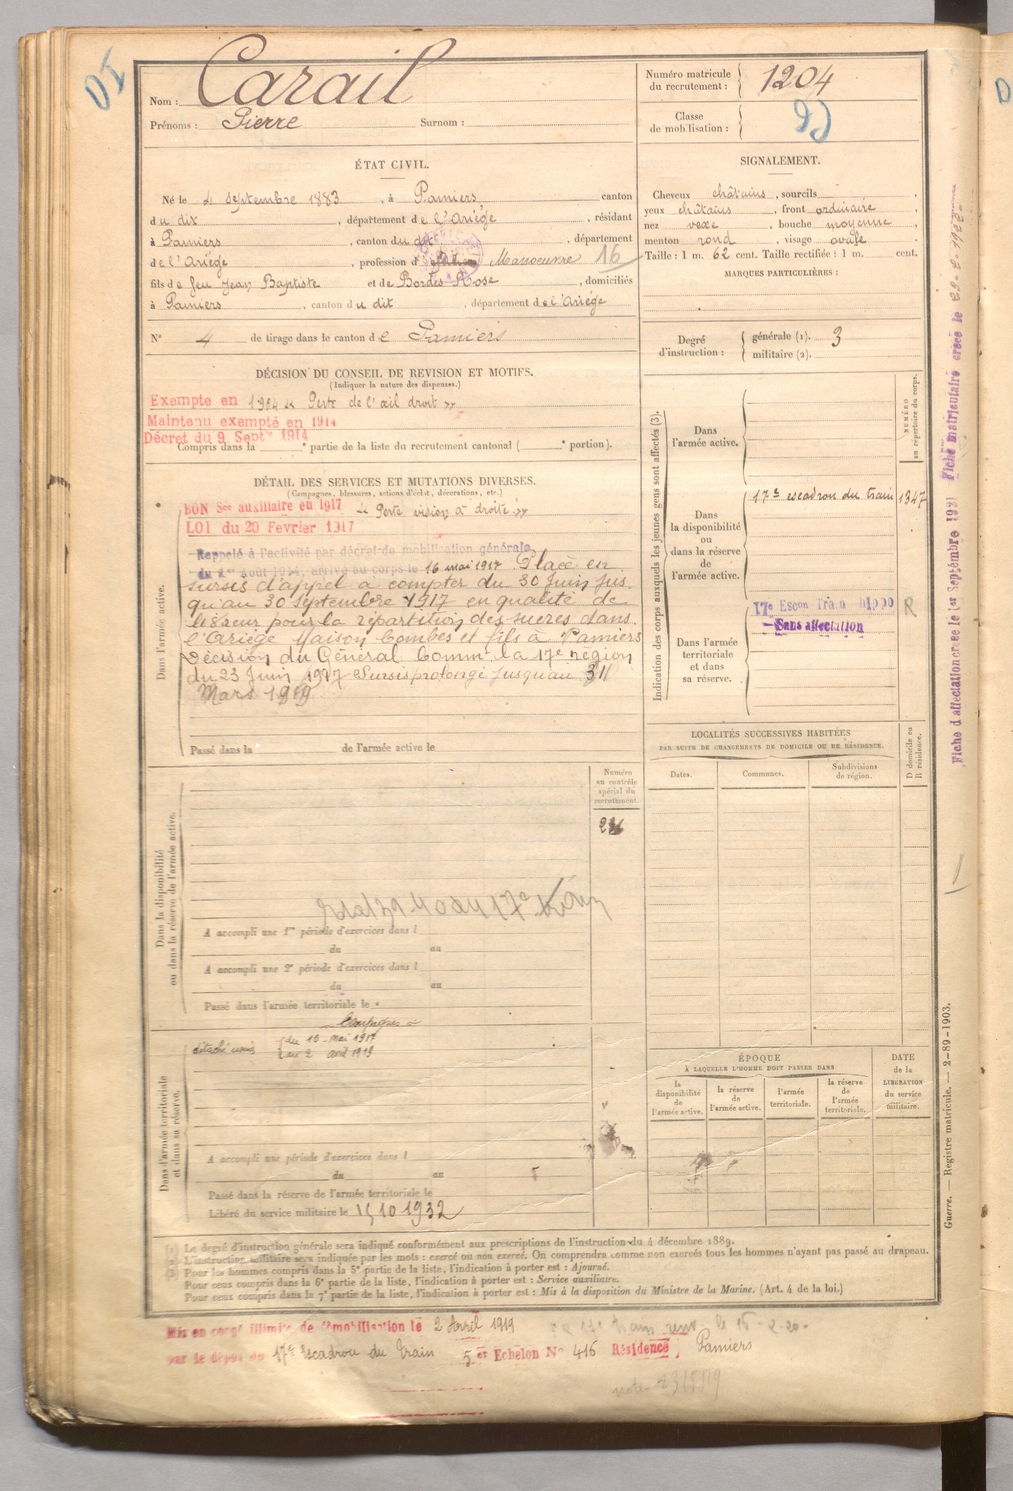 DI
Nom : Carail
Prénoms : Pierre Surnom :
Numéro matricule du recrutement : 1204
Classe de mobilisation :
ÉTAT CIVIL.
Né le 4 Septembre 1883, à Pamiers, canton
du dix, département de l'Ariége, résidant
à Pamiers, canton du dit, département
de l'Ariége, profession d Manoeuvre 16
fils de feu Jean Baptiste et de Bordes Rose, domiciliés
à Pamiers, canton du dit, département de l'Ariége
N° 4 de tirage dans le canton de Pamiers
SIGNALEMENT.
Cheveux châtains, sourcils
yeux châtains, front ordinaire,
nez vexe, bouche moyenne,
menton rond, visage ovale.
Taille : 1 m. 62 cent. Taille rectifiée : 1 m. cent.
MARQUES PARTICULIÈRES :
Degré d'instruction : générale (1). 3
militaire (2).
DÉCISION DU CONSEIL DE REVISION ET MOTIFS.
(Indiquer la nature des dispenses.)
Exempte en 1904 « Perte de l'œil droit »
Maintenu exempté en 1914
Décret du 9 Septre 1914
Compris dans la e partie de la liste du recrutement cantonal ( e portion).
DÉTAIL DES SERVICES ET MUTATIONS DIVERSES.
(Campagnes, blessures, actions d'éclat, décorations, etc.)
BON Sce auxiliaire en 1917 « Perte vision à droite »
LOI du 20 Fevrier 1917
Rappelé à l'activité par décret de mobilisation générale
du 1er août 1914, arrivé au corps le 16 mai 1917 Placé en
sursis d'appel à compter du 30 Juin jus
qu'au 30 Septembre 1917 en qualité de
livreur pour la répartition des sucres dans
l'Ariége Maison Combes et fils à Pamiers
Décision du Général Commt la 17e région
du 23 Juin 1917 Sursis prolongé jusqu'au 31
Mars 1919
Passé dans la de l'armée active le
Dans l'armée active.
Indication des corps auxquels les jeunes gens sont affectés (3).
NUMÉRO au répertoire du corps.
Dans l'armée active.
Dans la disponibilité ou dans la réserve de l'armée active.
17e escadron du train 1347
Dans l'armée territoriale et dans sa réserve.
17e Escon Train R
Sans affectation
Fiche d'affectation créée le 1er Septembre 1921 Fiche matriculaire créée le
LOCALITÉS SUCCESSIVES HABITÉES
PAR SUITE DE CHANGEMENTS DE DOMICILE OU DE RÉSIDENCE.
Dates. Communes. Subdivisions de région. D domicile ou R résidence.
Numéro au contrôle spécial du recrutement.
Dans la disponibilité ou dans la réserve de l'armée active.
A accompli une 1re période d'exercices dans l
du au
A accompli une 2e période d'exercices dans l
du au
Passé dans l'armée territoriale le
Campagnes
du 16 mai 1917
au 2 avril 1919
Dans l'armée territoriale et dans sa réserve.
A accompli une période d'exercices dans l
du au
Passé dans la réserve de l'armée territoriale le
Libéré du service militaire le 15 10 1932
ÉPOQUE
À LAQUELLE L'HOMME DOIT PASSER DANS
la disponibilité de l'armée active.
la réserve de l'armée active.
l'armée territoriale.
la réserve de l'armée territoriale.
DATE de la LIBÉRATION du service militaire.
Guerre. — Registre matricule. — 2-89-1903.
(1) Le degré d'instruction générale sera indiqué conformément aux prescriptions de l'instruction du 4 décembre 1889.
(2) L'instruction militaire sera indiquée par les mots : exercé ou non exercé. On comprendra comme non exercés tous les hommes n'ayant pas passé au drapeau.
(3) Pour les hommes compris dans la 5e partie de la liste, l'indication à porter est : Ajourné.
Pour ceux compris dans la 6e partie de la liste, l'indication à porter est : Service auxiliaire.
Pour ceux compris dans la 7e partie de la liste, l'indication à porter est : Mis à la disposition du Ministre de la Marine. (Art. 4 de la loi.)
Mis en congé illimité de démobilisation le 2 Avril 1919
par le dépôt du 17e Escadron du Train 5e Echelon N° 416 Résidence Pamiers